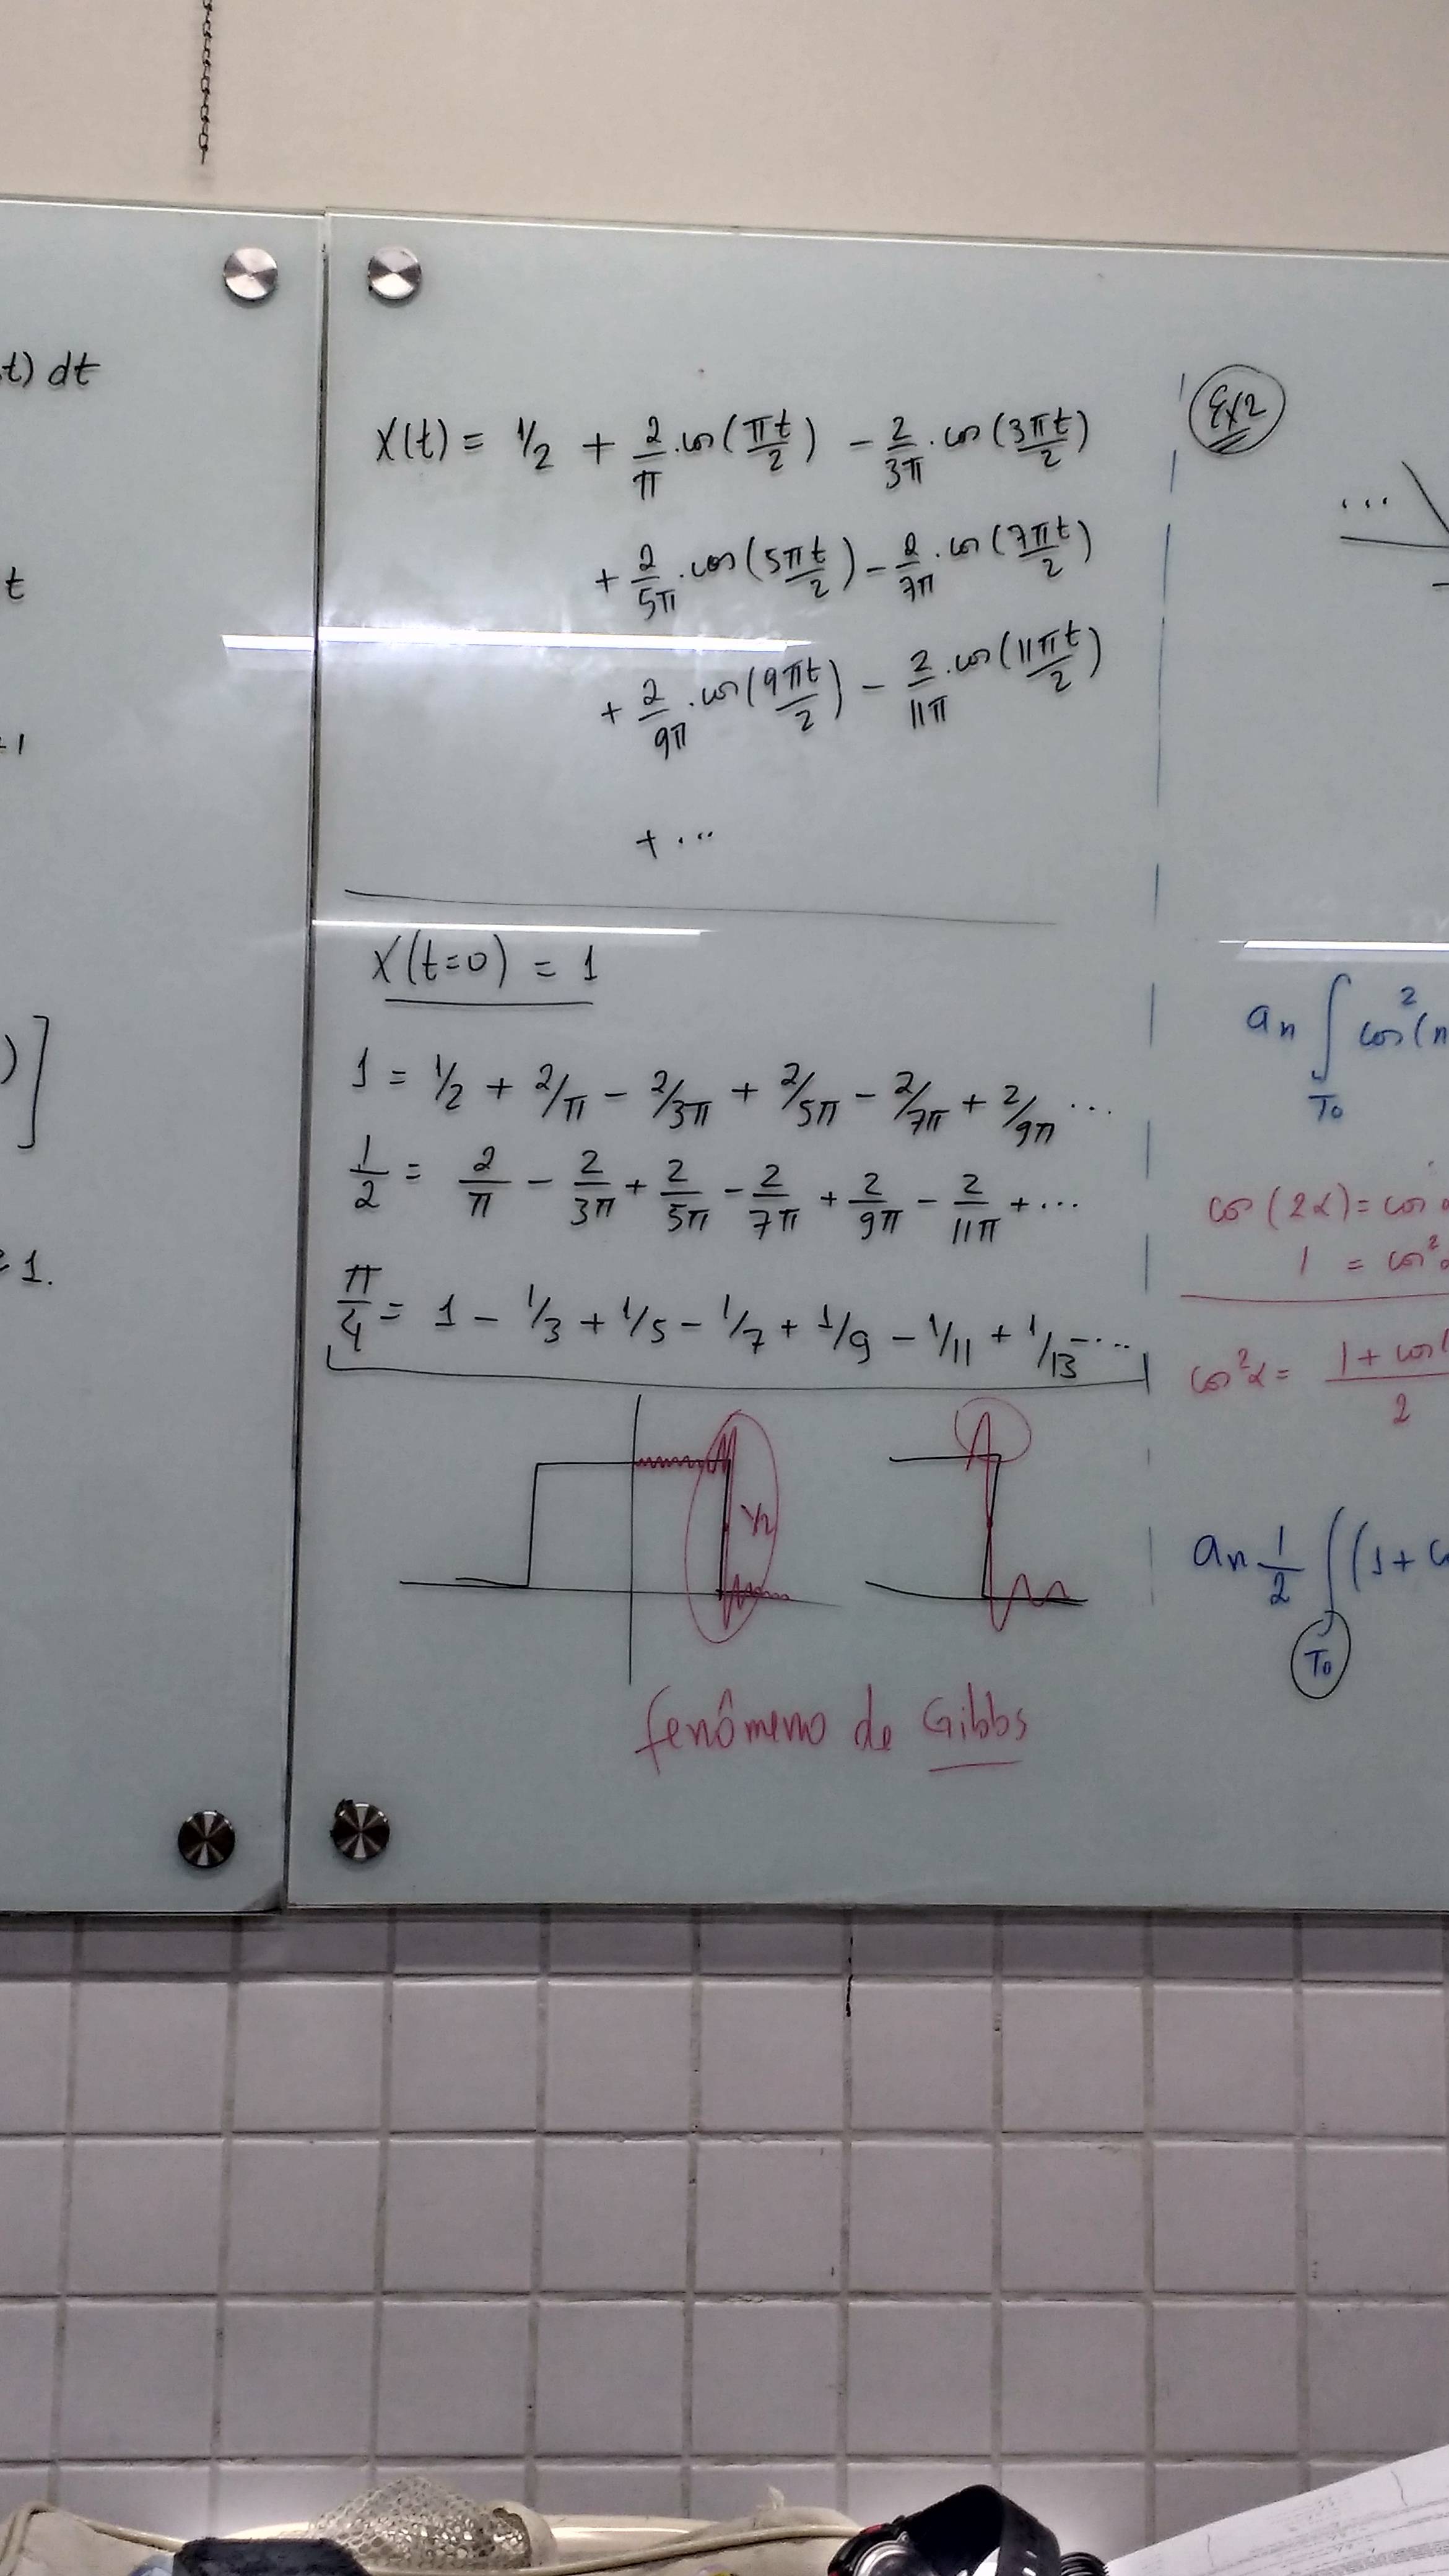 t) dt
t
+1
)]
= 1.
x(t) = 1/2 + 2/π · cos(πt/2) − 2/3π · cos(3πt/2)
+ 2/5π · cos(5πt/2) − 2/7π · cos(7πt/2)
+ 2/9π · cos(9πt/2) − 2/11π · cos(11πt/2)
+ ...
x(t=0) = 1
1 = 1/2 + 2/π − 2/3π + 2/5π − 2/7π + 2/9π ...
1/2 = 2/π − 2/3π + 2/5π − 2/7π + 2/9π − 2/11π + ...
π/4 = 1 − 1/3 + 1/5 − 1/7 + 1/9 − 1/11 + 1/13 − ...
1/2
fenômeno de Gibbs
Ex2
...
an ∫T0 cos²(n
cos(2α) = cos
1 = cos²α
cos²α = 1 + cos( / 2
an 1/2 ∫T0 (1 + c